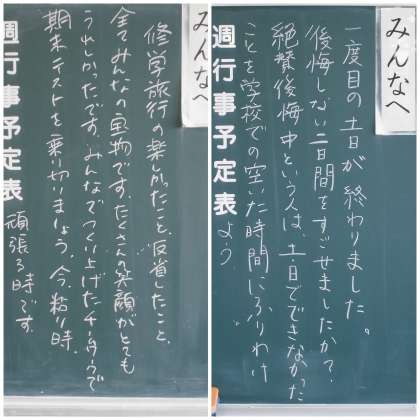 みんなへ
修学旅行の楽しかったこと、反省したこと、
全てみんなの宝物です。たくさんの笑顔がとても
うれしかったです。みんなでつくり上げたチームワークで
期末テストを乗り切りましょう。今、粘り時。
頑張る時です。
週行事予定表
みんなへ
一度目の土日が終わりました。
後悔しない二日間をすごせましたか？
絶賛後悔中という人は、土日でできなかった
ことを学校での空いた時間にふりわけ
よう。
週行事予定表